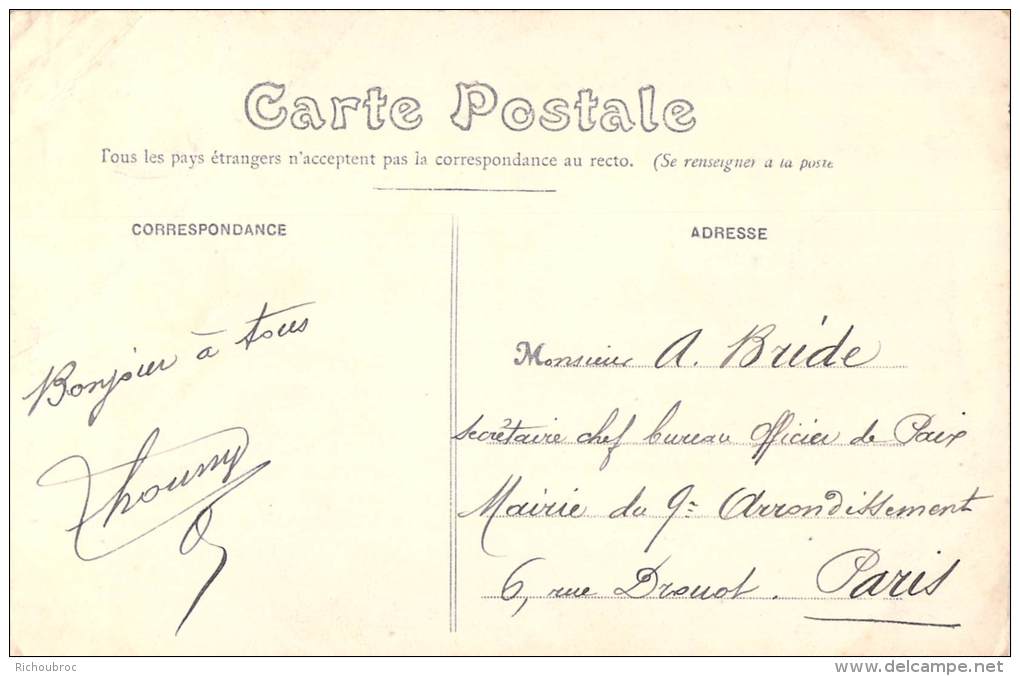 Carte Postale
Tous les pays étrangers n'acceptent pas la correspondance au recto. (Se renseigner à la poste
CORRESPONDANCE
Bonjour à tous
ADRESSE
Monsieur A. Bride
Secrétaire chef bureau Officier de Paix
Mairie du 9e Arrondissement
6, rue Drouot. Paris
Richoubroc
delcampe.net